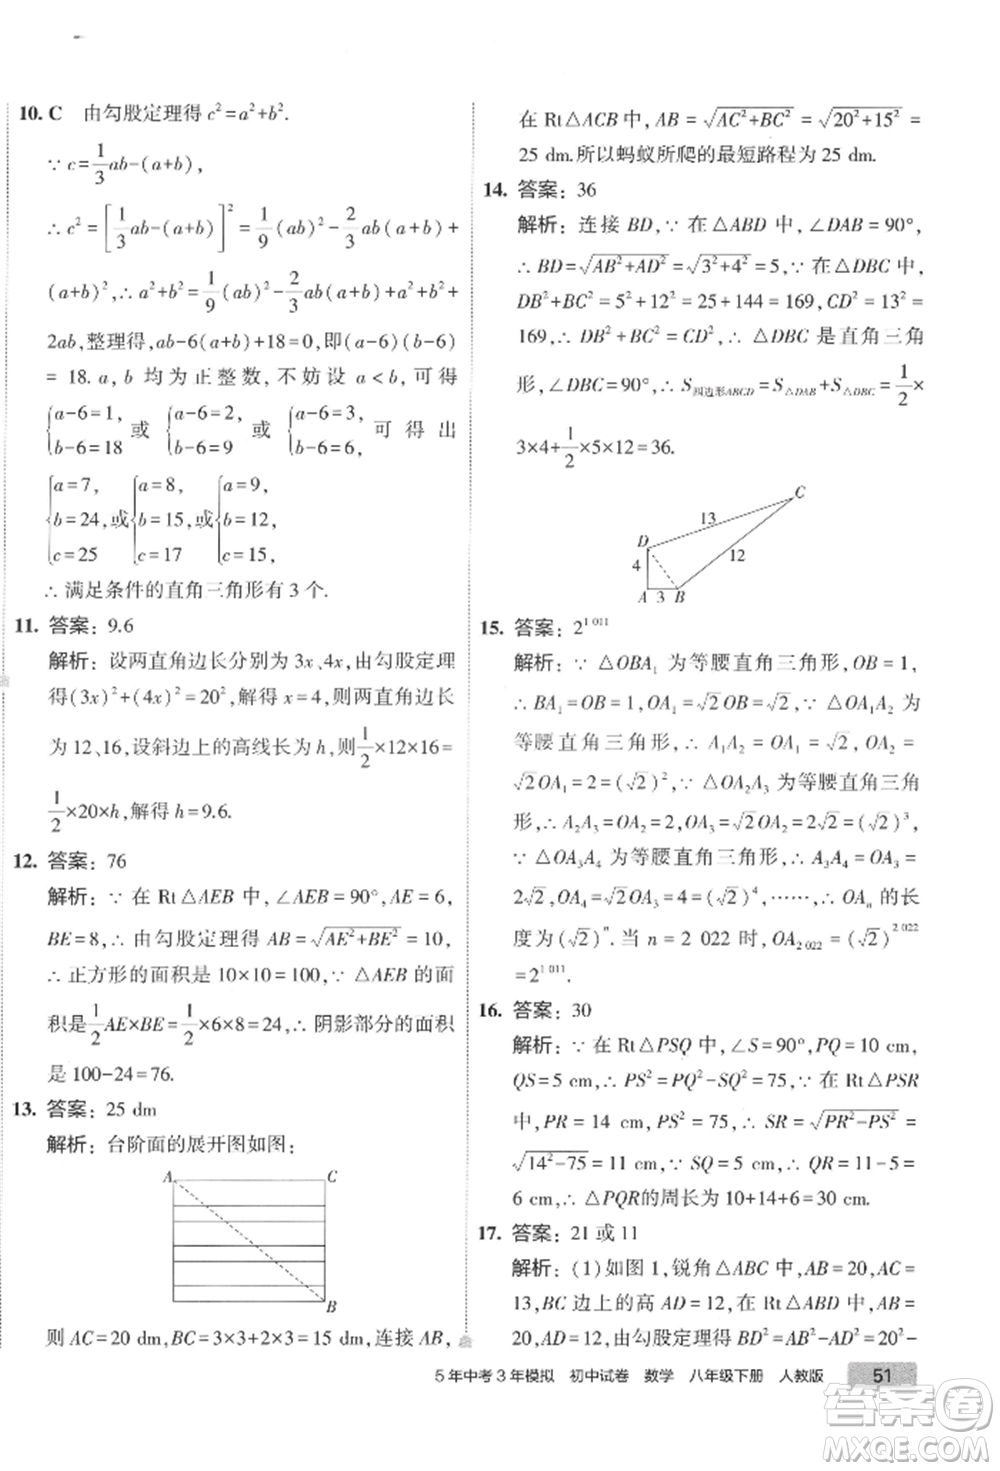 10. C 由勾股定理得 c²=a²+b².
∵ c=1/3ab-(a+b),
∴ c²=[1/3ab-(a+b)]²=1/9(ab)²-2/3ab(a+b)+
(a+b)²,∴ a²+b²=1/9(ab)²-2/3ab(a+b)+a²+b²+
2ab,整理得,ab-6(a+b)+18=0,即(a-6)(b-6)
=18.a,b 均为正整数,不妨设 a<b,可得
{a-6=1, b-6=18 或 {a-6=2, b-6=9 或 {a-6=3, b-6=6. 可得出
{a=7, b=24, c=25 或 {a=8, b=15, c=17 或 {a=9, b=12, c=15.
∴ 满足条件的直角三角形有 3 个.
11. 答案：9.6
解析：设两直角边长分别为 3x、4x,由勾股定理
得(3x)²+(4x)²=20²,解得 x=4,则两直角边长
为 12、16,设斜边上的高线长为 h,则1/2×12×16=
1/2×20×h,解得 h=9.6.
12. 答案：76
解析：∵ 在 Rt△AEB 中,∠AEB=90°,AE=6,
BE=8,∴ 由勾股定理得 AB=√(AE²+BE²)=10,
∴ 正方形的面积是 10×10=100,∵ △AEB 的面
积是1/2AE×BE=1/2×6×8=24,∴ 阴影部分的面积
是 100-24=76.
13. 答案：25 dm
解析：台阶面的展开图如图：
A C
B
则 AC=20 dm,BC=3×3+2×3=15 dm,连接 AB,
在 Rt△ACB 中,AB=√(AC²+BC²)=√(20²+15²)=
25 dm.所以蚂蚁所爬的最短路程为 25 dm.
14. 答案：36
解析：连接 BD,∵ 在△ABD 中,∠DAB=90°,
∴ BD=√(AB²+AD²)=√(3²+4²)=5,∵ 在△DBC 中,
DB²+BC²=5²+12²=25+144=169,CD²=13²=
169,∴ DB²+BC²=CD²,∴ △DBC 是直角三角
形,∠DBC=90°,∴ S四边形ABCD=S△DAB+S△DBC=1/2×
3×4+1/2×5×12=36.
C
13
D
12
4
A 3 B
15. 答案：2^1 011
解析：∵ △OBA₁ 为等腰直角三角形,OB=1,
∴ BA₁=OB=1,OA₁=√2OB=√2,∵ △OA₁A₂ 为
等腰直角三角形,∴ A₁A₂=OA₁=√2,OA₂=
√2OA₁=2=(√2)²,∵ △OA₂A₃ 为等腰直角三角
形,∴ A₂A₃=OA₂=2,OA₃=√2OA₂=2√2=(√2)³,
∵ △OA₃A₄ 为等腰直角三角形,∴ A₃A₄=OA₃=
2√2,OA₄=√2OA₃=4=(√2)⁴,……,∴ OAₙ 的长
度为(√2)ⁿ.当 n=2 022 时,OA₂ ₀₂₂=(√2)^2 022
=2^1 011.
16. 答案：30
解析：∵ 在 Rt△PSQ 中,∠S=90°,PQ=10 cm,
QS=5 cm,∴ PS²=PQ²-QS²=75,∵ 在 Rt△PSR
中,PR=14 cm,PS²=75,∴ SR=√(PR²-PS²)=
√(14²-75)=11 cm,∵ SQ=5 cm,∴ QR=11-5=
6 cm,∴ △PQR的周长为 10+14+6=30 cm.
17. 答案：21 或 11
解析：(1)如图 1,锐角△ABC 中,AB=20,AC=
13,BC 边上的高 AD=12,在 Rt△ABD 中,AB=
20,AD=12,由勾股定理得 BD²=AB²-AD²=20²-
5年中考3年模拟 初中试卷 数学 八年级下册 人教版 51
答案卷
MXQE.COM